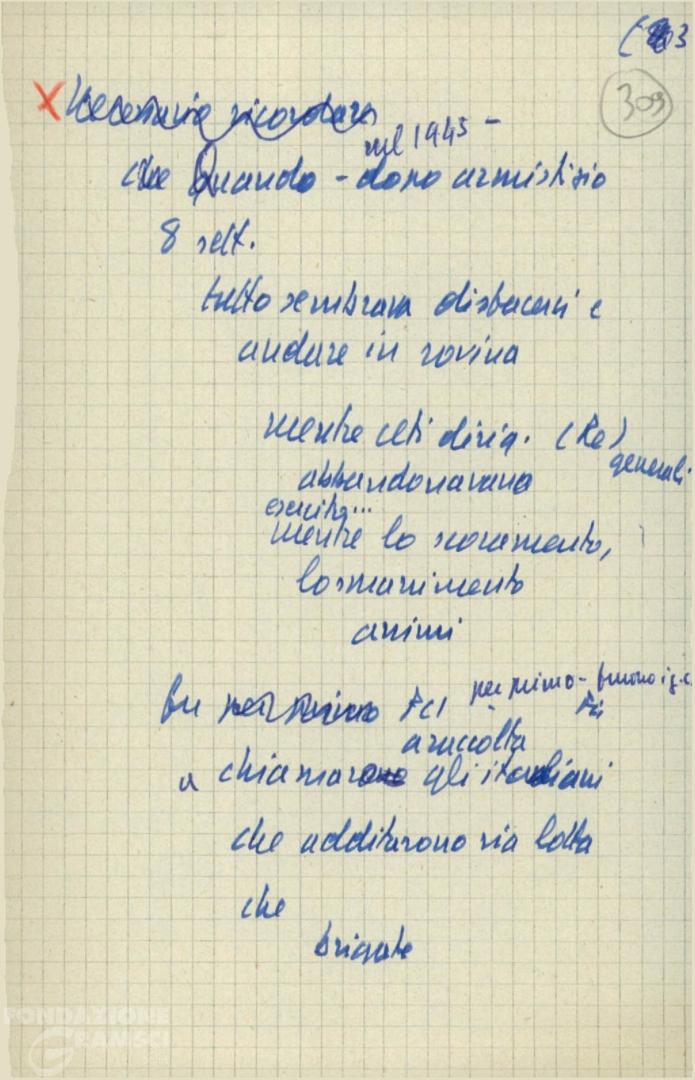 303
309
X Necessario ricordare
nel 1943 -
che Quando - dopo armistizio
8 sett.
tutto sembrava disfacersi e
andare in rovina
mentre ceti dirig. (Re)
generali
abbandonavano
esercito...
mentre lo scoramento,
lo smarrimento
animi
per primo - furono i g. c.
fu per primo PCI
a raccolta
a chiamarono gli italiani
che additarono via lotta
che
brigate
FONDAZIONE
GRAMSCI